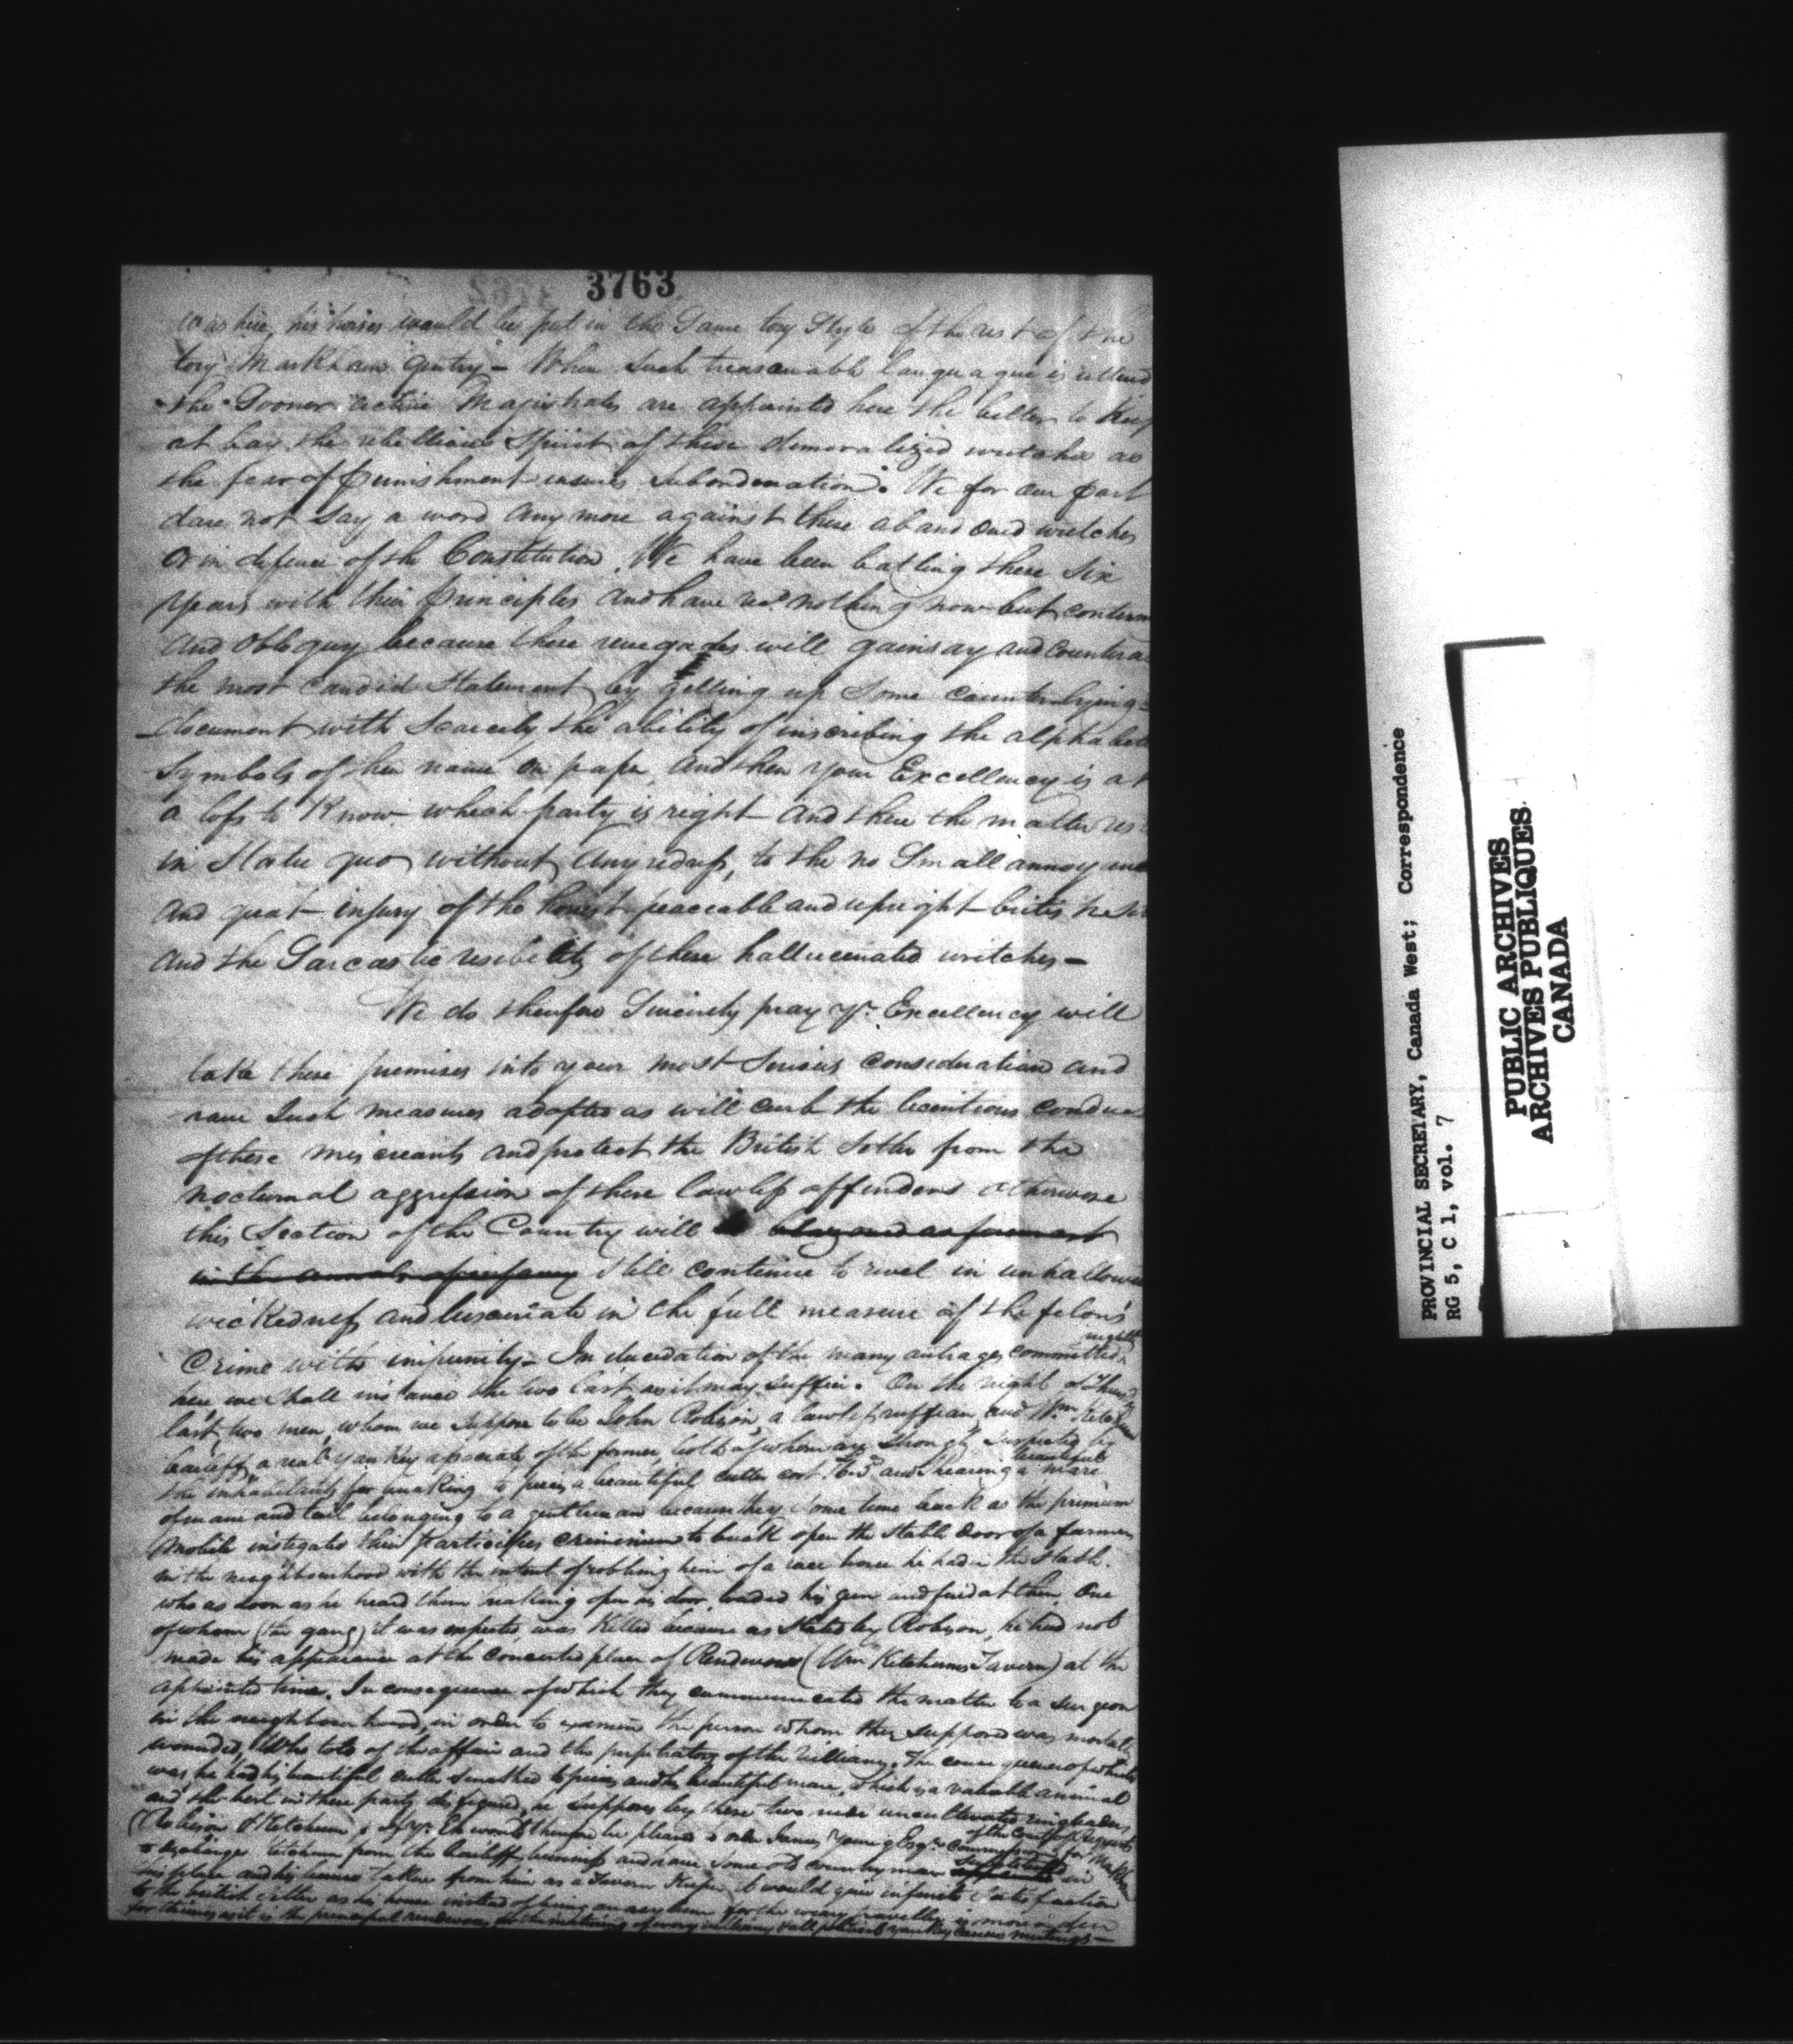 3763
was here, his horses would be put in the Same tory Style of the rest of the
tory Markham gentry – When Such treasonable language is uttered
the Sooner active Magistrates are appointed here the better to keep
at bay the rebellious Spirit of these demoralized wretches as
the fear of punishment insures Subordination. We for our part
dare not Say a word any more against these abandoned wretches
or in defence of the Constitution. We have been batling these Six
Years with their principles and have recd nothing now but contem
and obloquy because these renegades will gainsay and countera
the most candid Statement by getting up Some counter lying
document with Scarcely the ability of inscribing the alphabet
Symbols of their name on paper, and then your Excellency is at
a loss to Know which party is right and there the matter
in Statu quo without any redress, to the no Small annoy
and great injury of the honest peaceable and upright
and the Sarcastic risibility of these hallucinated wretches –
We do therefore Sincerely pray yr. Excellency will
take these premises into your most Serious consideration and
have Such measures adopted as will curb the licentious conduc
of these miscreants and protect the British Settler from the
nocturnal aggression of these lawless offenders otherwise
this Section of the Country will
Still continue to revel in unhallowed
wickedness and luxuriate in the full measure of the felon's
Crime with impunity – In elucidation of the many outrages committed nightly
here, we Shall instance the two last as it may Suffice. On the night of
last two men, whom we Suppose to be John Robison, a lawless ruffian, and Wm. Ketchum
bailiff a real Yankey associate of the former, both of whom are Strongly Suspected by
the inhabitants for breaking to pieces a beautiful cutter cost and Shearing a beautiful mare
of mane and tail belonging to a gentleman because they Some time back as the primum
mobile instigated their Participes criminium to break open the Stable door of a farmer
in the neighbourhood with the intent of robbing him of a race horse he had in the Stable.
who as Soon as he heard them breaking open his door, loaded his gun and fired at them. One
of whom (the gang) it was expected was Killed because as Stated by Robison, he had not
made his appearance at the concerted place of Rendevous (Wm Ketchums Tavern) at the
appointed time. In consequence of which they communicated the matter to a Surgeon
in the neighbourhood, in order to examine the person whom they Supposed was mortally
wounded, Who told of the affair and the perpetrators of the Villiany. The consequence of which
was he had his beautiful cutter Smashed to pieces and his beautiful mare, which is a valuable animal
and the best in these parts, disfigured, he Supposes by these two rude uncultivated ringleaders
(Robison & Ketchum) If yr. Ex would therefore be pleased to order James Young Esqr. Commissioner of the Court of Requests for Markham
to discharge Ketchum from the bailiff business and have Some old countryman Substituted in
his place and his licence taken from him as a Tavern Keeper it would give infinite Satisfaction
to the british Settler as his house instead of being an asylum for the weary traveller is more a den
for thieves as it is the principal rendevous meetings –
PROVINCIAL SECRETARY, Canada West; Correspondence
RG 5, C 1, vol. 7
PUBLIC ARCHIVES
ARCHIVES PUBLIQUES
CANADA